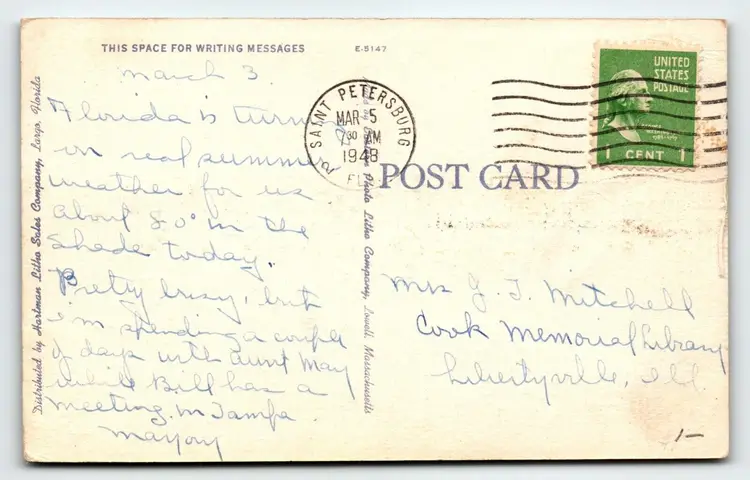 THIS SPACE FOR WRITING MESSAGES
E-5147
March 3.
Florida is turning
on real summer
weather for us
about 80° in the
shade today.
Pretty busy, but
I'm spending a couple
of days with Aunt May
while Bill has a
meeting in Tampa
Distributed by Hartman Litho Sales Company, Largo, Florida
Photo Litho Company, Lowell, Massachusetts
SAINT PETERSBURG
MAR 5
30 AM
1948
UNITED
STATES
POSTAGE
1 CENT 1
POST CARD
Mrs G. J. Mitchell
Cook Memorial Library
Libertyville, Ill
1-